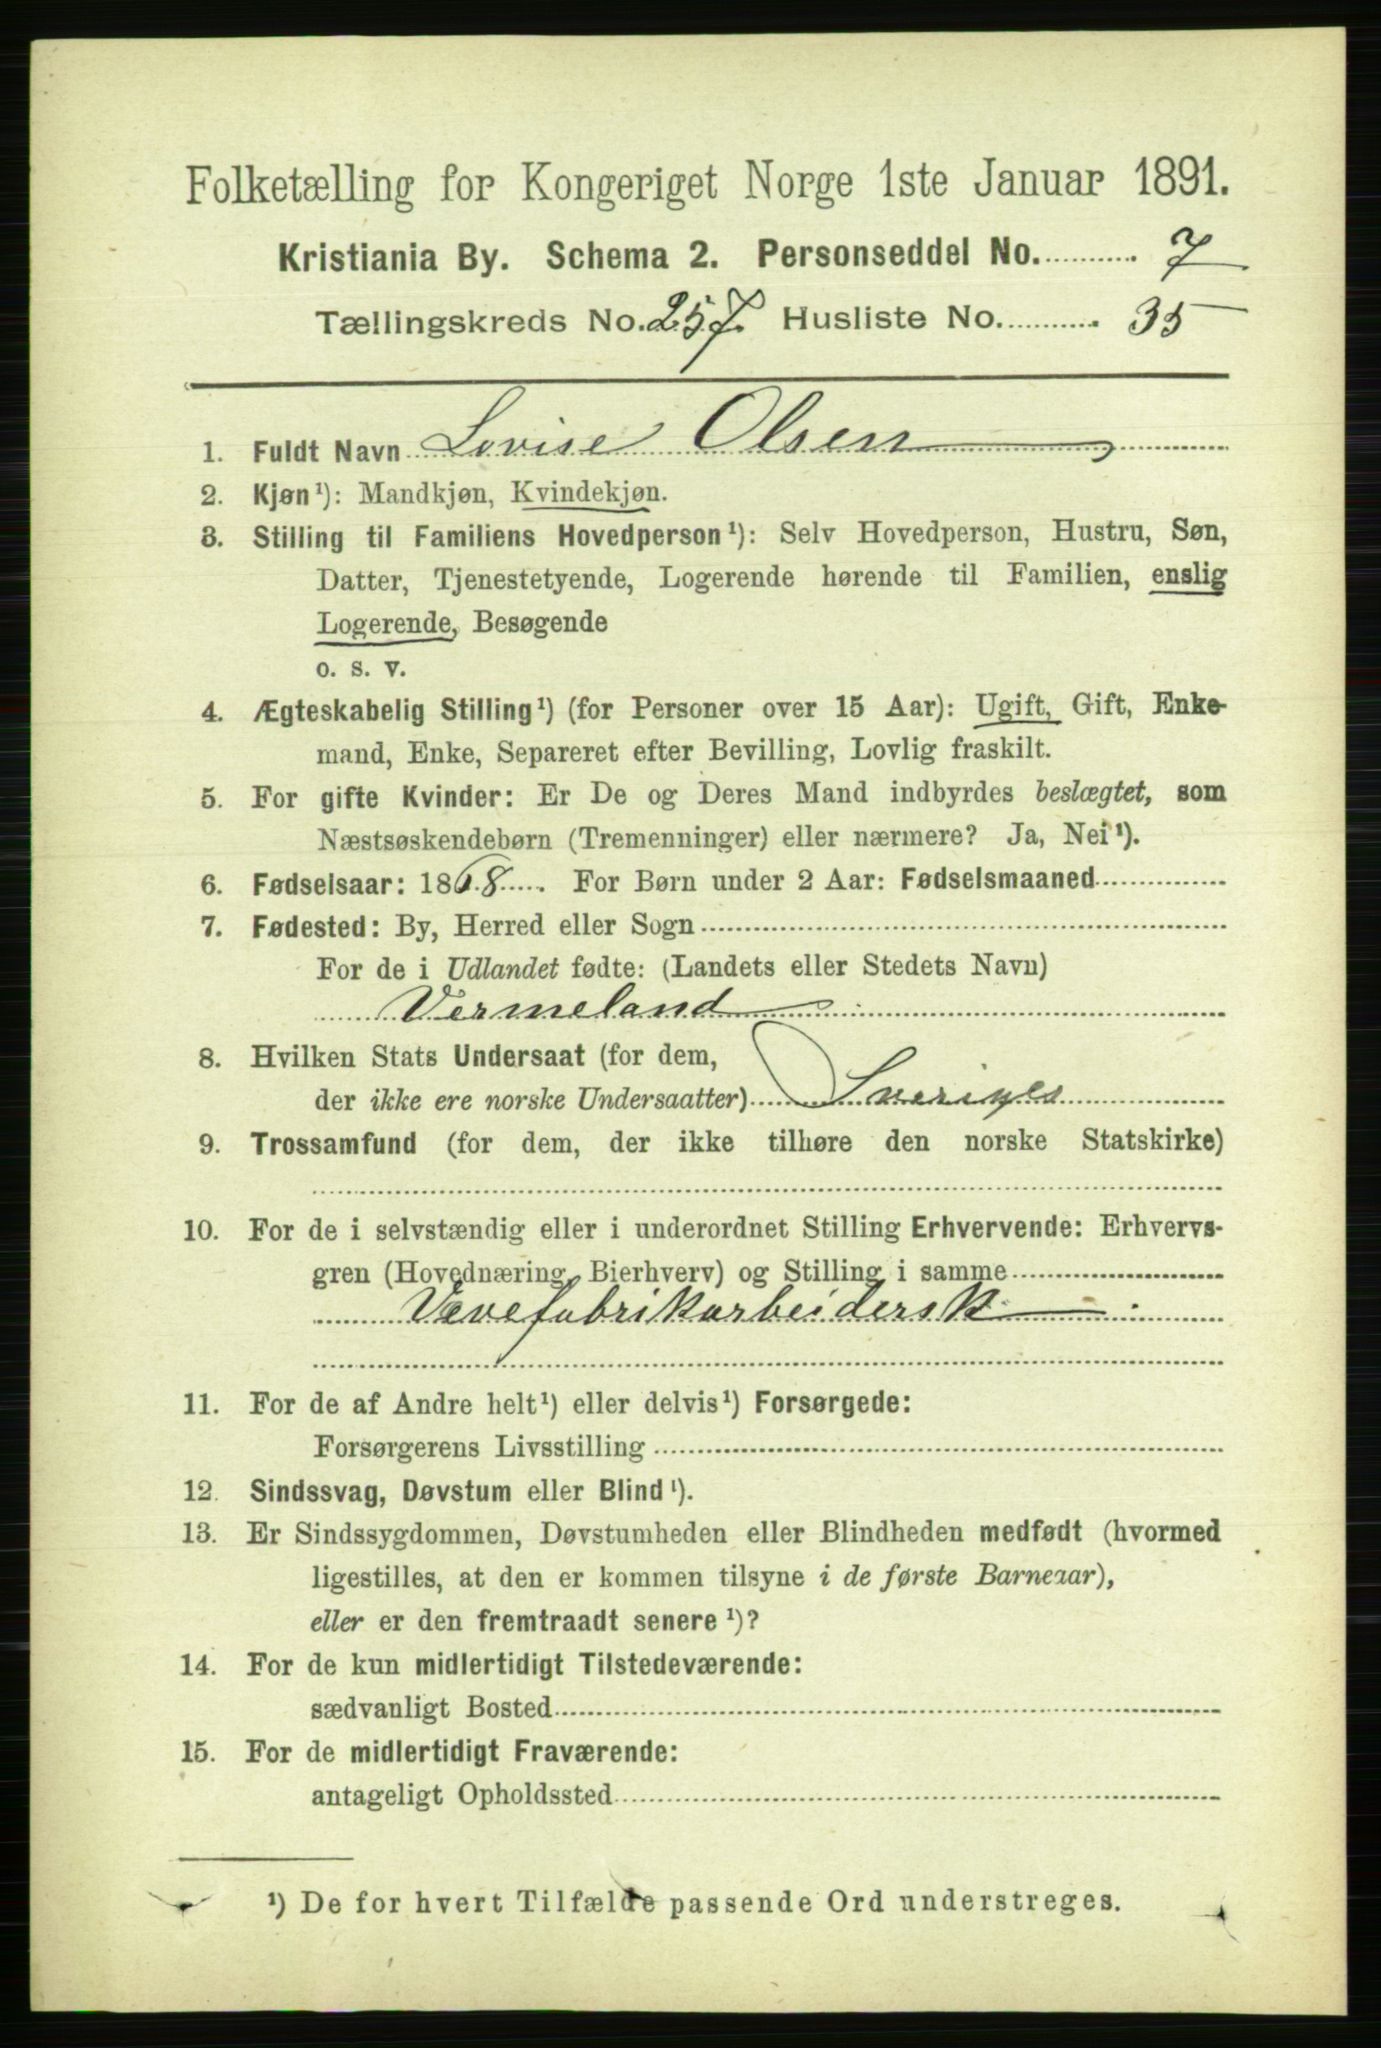 Folketælling for Kongeriget Norge 1ste Januar 1891.
Kristiania By. Schema 2. Personseddel No. 7
Tællingskreds No. 257. Husliste No. 35
1. Fuldt Navn Lovise Olsen
2. Kjøn¹): Mandkjøn, Kvindekjøn.
3. Stilling til Familiens Hovedperson¹): Selv Hovedperson, Hustru, Søn,
Datter, Tjenestetyende, Logerende hørende til Familien, enslig
Logerende, Besøgende
o. s. v.
4. Ægteskabelig Stilling¹) (for Personer over 15 Aar): Ugift, Gift, Enke-
mand, Enke, Separeret efter Bevilling, Lovlig fraskilt.
5. For gifte Kvinder: Er De og Deres Mand indbyrdes beslægtet, som
Næstsøskendebørn (Tremenninger) eller nærmere? Ja, Nei¹).
6. Fødselsaar: 1868. For Børn under 2 Aar: Fødselsmaaned
7. Fødested: By, Herred eller Sogn
For de i Udlandet fødte: (Landets eller Stedets Navn)
Vermeland
8. Hvilken Stats Undersaat (for dem,
der ikke ere norske Undersaatter) Sveriges
9. Trossamfund (for dem, der ikke tilhøre den norske Statskirke)
10. For de i selvstændig eller i underordnet Stilling Erhvervende: Erhvervs-
gren (Hovednæring, Bierhverv) og Stilling i samme
Vævefabrikarbeidersk
11. For de af Andre helt¹) eller delvis¹) Forsørgede:
Forsørgerens Livsstilling
12. Sindssvag, Døvstum eller Blind¹).
13. Er Sindssygdommen, Døvstumheden eller Blindheden medfødt (hvormed
ligestilles, at den er kommen tilsyne i de første Barneaar),
eller er den fremtraadt senere¹)?
14. For de kun midlertidigt Tilstedeværende:
sædvanligt Bosted
15. For de midlertidigt Fraværende:
antageligt Opholdssted
¹) De for hvert Tilfælde passende Ord understreges.